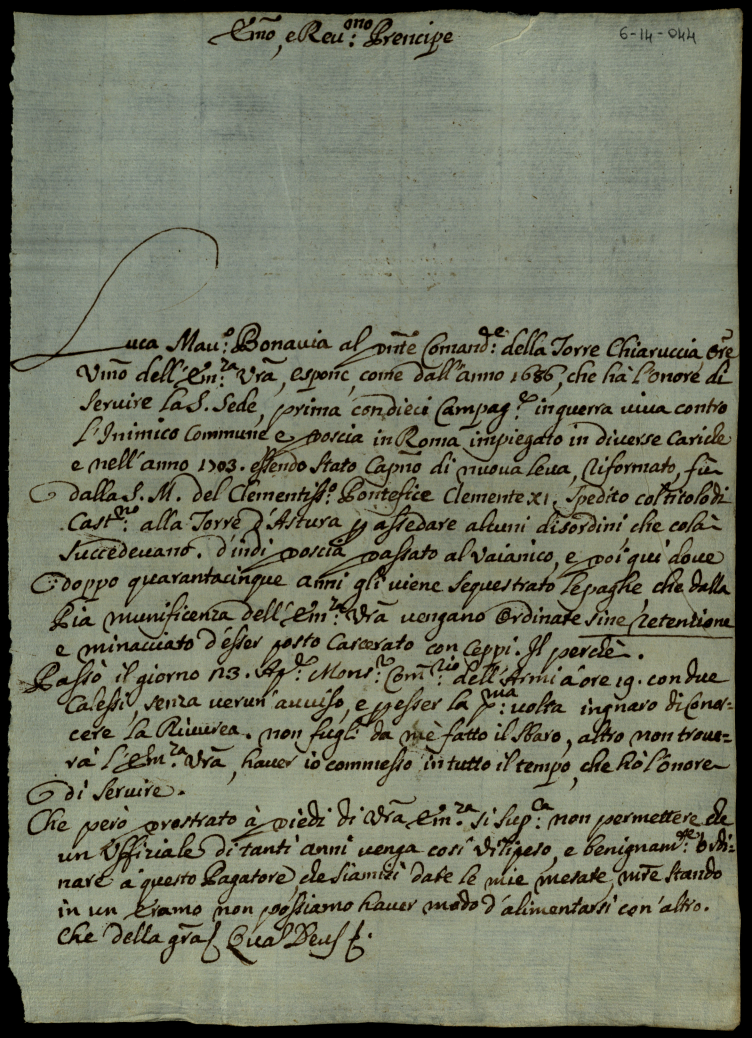 Emo, e Reu:mo Prencipe
6-14-044
Luca Mau:o Bonavia al pnte Comand:e della Torre Chiaruccia Ore
Vmo dell'Em:za Vra, espone, come dall'anno 1686, che hà l'onore di
servire la S. Sede, prima con dieci Campag:e in guerra viva contro
l'Inimico Commune e poscia in Roma impiegato in diverse cariche
e nell'anno 1703. essendo stato Capno di nuova leva, riformato, fù
dalla S. M. del Clementiss:o Pontefice Clemente XI. spedito col titolo di
Cast:no alla Torre d'Astura p assedare alcuni disordini che colà
succedevano. d'indi poscia passato al Vaianico, e poi qui dove
doppo quarantacinque anni gli viene sequestrato le paghe, che dalla
Pia munificenza dell'Em:za Vra vengano ordinate sine retentione
e minacciato d'esser posto carcerato con ceppi. Il perchè.
Passò il giorno 23. Ap:le Mons:r Com:rio dell'Armi à ore 19. con due
Calessi, senza verun'avviso, e p esser la p:ma volta ingnaro di Conos-
cere la Riverea. non fugli da mè fatto il sbaro, altro non trove-
rà l'Em:za Vra, haver io commesso in tutto il tempo, che hò l'onore
di servire.
Che però prostrato à piedi di Vra Em:za si sup:ca non permettere che
un Uffiziale di tanti anni venga così vilipeso, e benignam:te ordi-
nare à questo Pagatore che siami date le mie mesate, mre stando
in un Eramo non possiamo haver modo d'alimentarsi con altro.
Che della gra Quas Deus